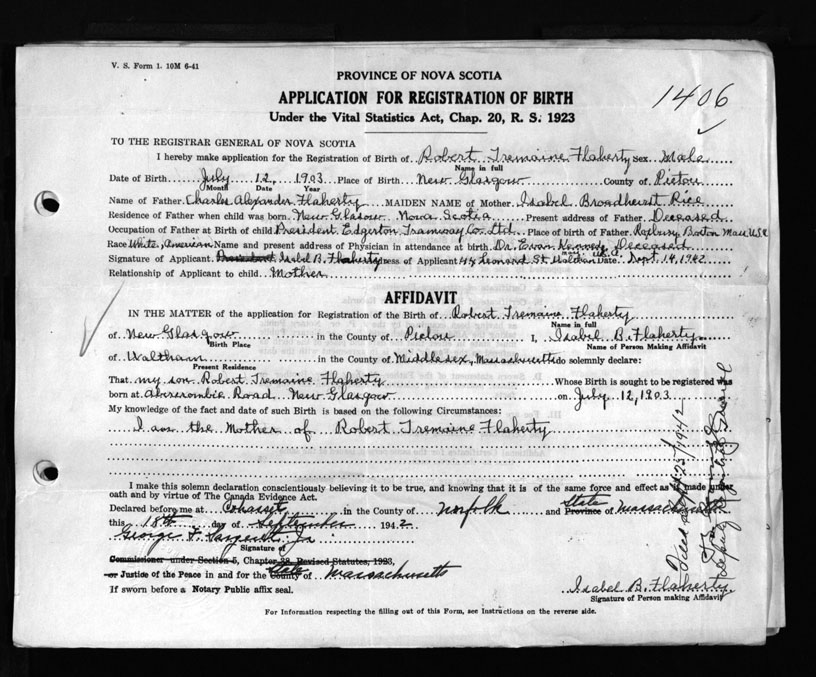 V. S. Form 1. 10M 6-41
PROVINCE OF NOVA SCOTIA
APPLICATION FOR REGISTRATION OF BIRTH
Under the Vital Statistics Act, Chap. 20, R. S. 1923
1406
TO THE REGISTRAR GENERAL OF NOVA SCOTIA
I hereby make application for the Registration of Birth of Robert Tremaine Flaherty Sex Male
Name in full
Date of Birth July 12, 1903 Place of Birth New Glasgow County of Pictou
Month Date Year
Name of Father Charles Alexander Flaherty MAIDEN NAME of Mother Isabel Broadhurst Rice
Residence of Father when child was born New Glasgow Nova Scotia Present address of Father Deceased
Occupation of Father at Birth of child President Edgerton Tramway Co. Ltd. Place of birth of Father Roxbury, Boston Mass U.S.A
Race White, American Name and present address of Physician in attendance at birth Dr. Evan Kennedy Deceased
Signature of Applicant Isabel B. Flaherty Address of Applicant 44 Leonard St Waltham Mass U.S.A. Date Sept. 14, 1942
Relationship of Applicant to child Mother
AFFIDAVIT
IN THE MATTER of the application for Registration of the Birth of Robert Tremaine Flaherty
Name in full
of New Glasgow in the County of Pictou I, Isabel B. Flaherty
Birth Place Name of Person Making Affidavit
of Waltham in the County of Middlesex, Massachusetts do solemnly declare:
Present Residence
That my son Robert Tremaine Flaherty Whose Birth is sought to be registered was
born at Abercrombie Road New Glasgow on July 12, 1903
My knowledge of the fact and date of such Birth is based on the following Circumstances:
I am the Mother of Robert Tremaine Flaherty
I make this solemn declaration conscientiously believing it to be true, and knowing that it is of the same force and effect as if made under
oath and by virtue of The Canada Evidence Act.
Declared before me at Cohasset in the County of Norfolk and State Province of Massachusetts
this 18th day of September 1942
George F. Sargent Jr.
Signature of
Commissioner under Section 5, Chapter 38, Revised Statutes, 1923,
or Justice of the Peace in and for the State County of Massachusetts
If sworn before a Notary Public affix seal.
Isabel B. Flaherty
Signature of Person making Affidavit
For Information respecting the filling out of this Form, see Instructions on the reverse side.
Filed Sept 23/1942
Deputy Registrar General